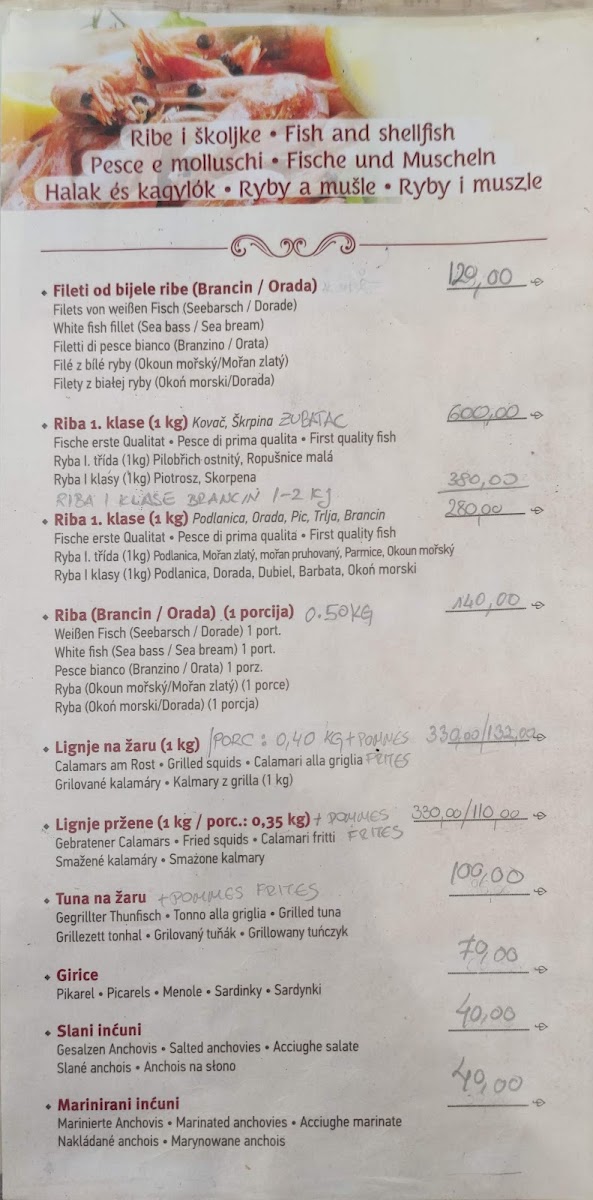 Ribe i školjke • Fish and shellfish
Pesce e molluschi • Fische und Muscheln
Halak és kagylók • Ryby a mušle • Ryby i muszle
Fileti od bijele ribe (Brancin / Orada) 129,00
Filets von weißen Fisch (Seebarsch / Dorade)
White fish fillet (Sea bass / Sea bream)
Filetti di pesce bianco (Branzino / Orata)
Filé z bílé ryby (Okoun mořský/Mořan zlatý)
Filety z białej ryby (Okoń morski/Dorada)
Riba 1. klase (1 kg) Kovač, Škrpina ZUBATAC 600,00
Fische erste Qualitat • Pesce di prima qualita • First quality fish
Ryba I. třída (1kg) Pilobřich ostnitý, Ropušnice malá
Ryba I klasy (1kg) Piotrosz, Skorpena 380,00
RIBA I KLASE BRANCIN 1-2 KJ
Riba 1. klase (1 kg) Podlanica, Orada, Pic, Trlja, Brancin 280,00
Fische erste Qualitat • Pesce di prima qualita • First quality fish
Ryba I. třída (1kg) Podlanica, Mořan zlatý, mořan pruhovaný, Parmice, Okoun mořský
Ryba I klasy (1kg) Podlanica, Dorada, Dubiel, Barbata, Okoń morski
Riba (Brancin / Orada) (1 porcija) 0.50KG 140,00
Weißen Fisch (Seebarsch / Dorade) 1 port.
White fish (Sea bass / Sea bream) 1 port.
Pesce bianco (Branzino / Orata) 1 porz.
Ryba (Okoun mořský/Mořan zlatý) (1 porce)
Ryba (Okoń morski/Dorada) (1 porcja)
Lignje na žaru (1 kg) /PORC: 0,40 KG + POMMES 330,00/132,00
Calamars am Rost • Grilled squids • Calamari alla griglia FRITES
Grilované kalamáry • Kalmary z grilla (1 kg)
Lignje pržene (1 kg / porc.: 0,35 kg) + POMMES 330,00/110,00
Gebratener Calamars • Fried squids • Calamari fritti FRITES
Smažené kalamáry • Smażone kalmary
Tuna na žaru + POMMES FRITES 100,00
Gegrillter Thunfisch • Tonno alla griglia • Grilled tuna
Grillezett tonhal • Grilovaný tuňák • Grillowany tuńczyk
Girice 70,00
Pikarel • Picarels • Menole • Sardinky • Sardynki
Slani inćuni 40,00
Gesalzen Anchovis • Salted anchovies • Acciughe salate
Slané anchois • Anchois na słono
Marinirani inćuni 40,00
Marinierte Anchovis • Marinated anchovies • Acciughe marinate
Nakládané anchois • Marynowane anchois